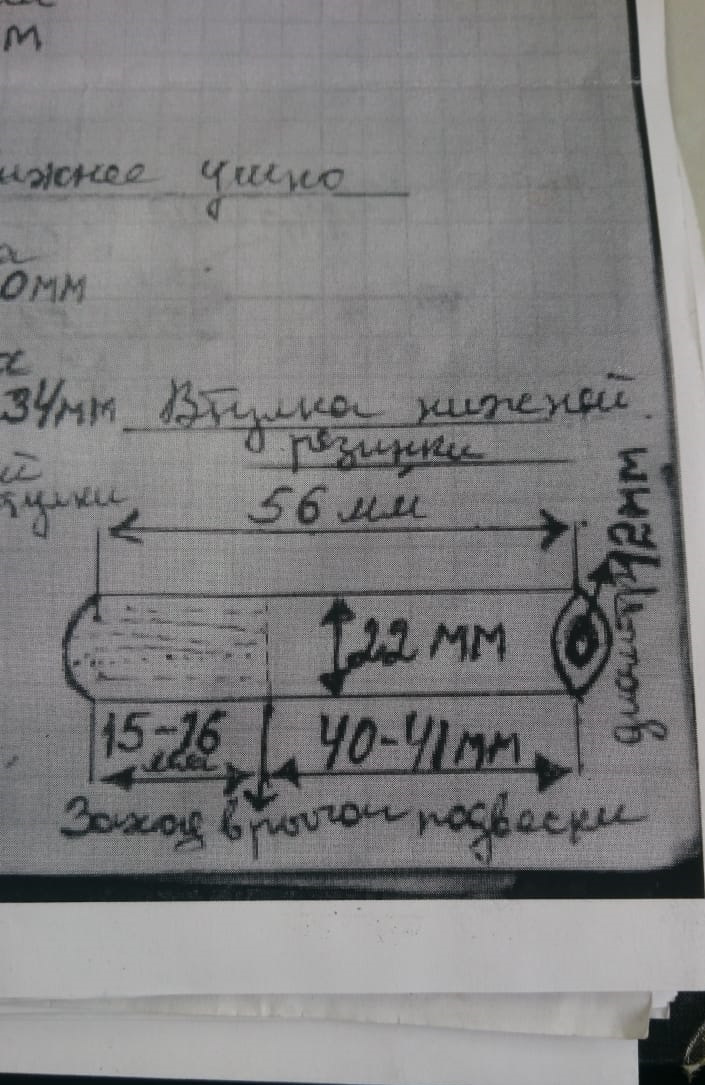 м
ижнее ушко
а
0мм
х
34мм Втулка нижней
резинки
й
тулки
56 мм
22 мм
диаметр 12мм
15-16
мм
40-41мм
Заход в рычаг подвески